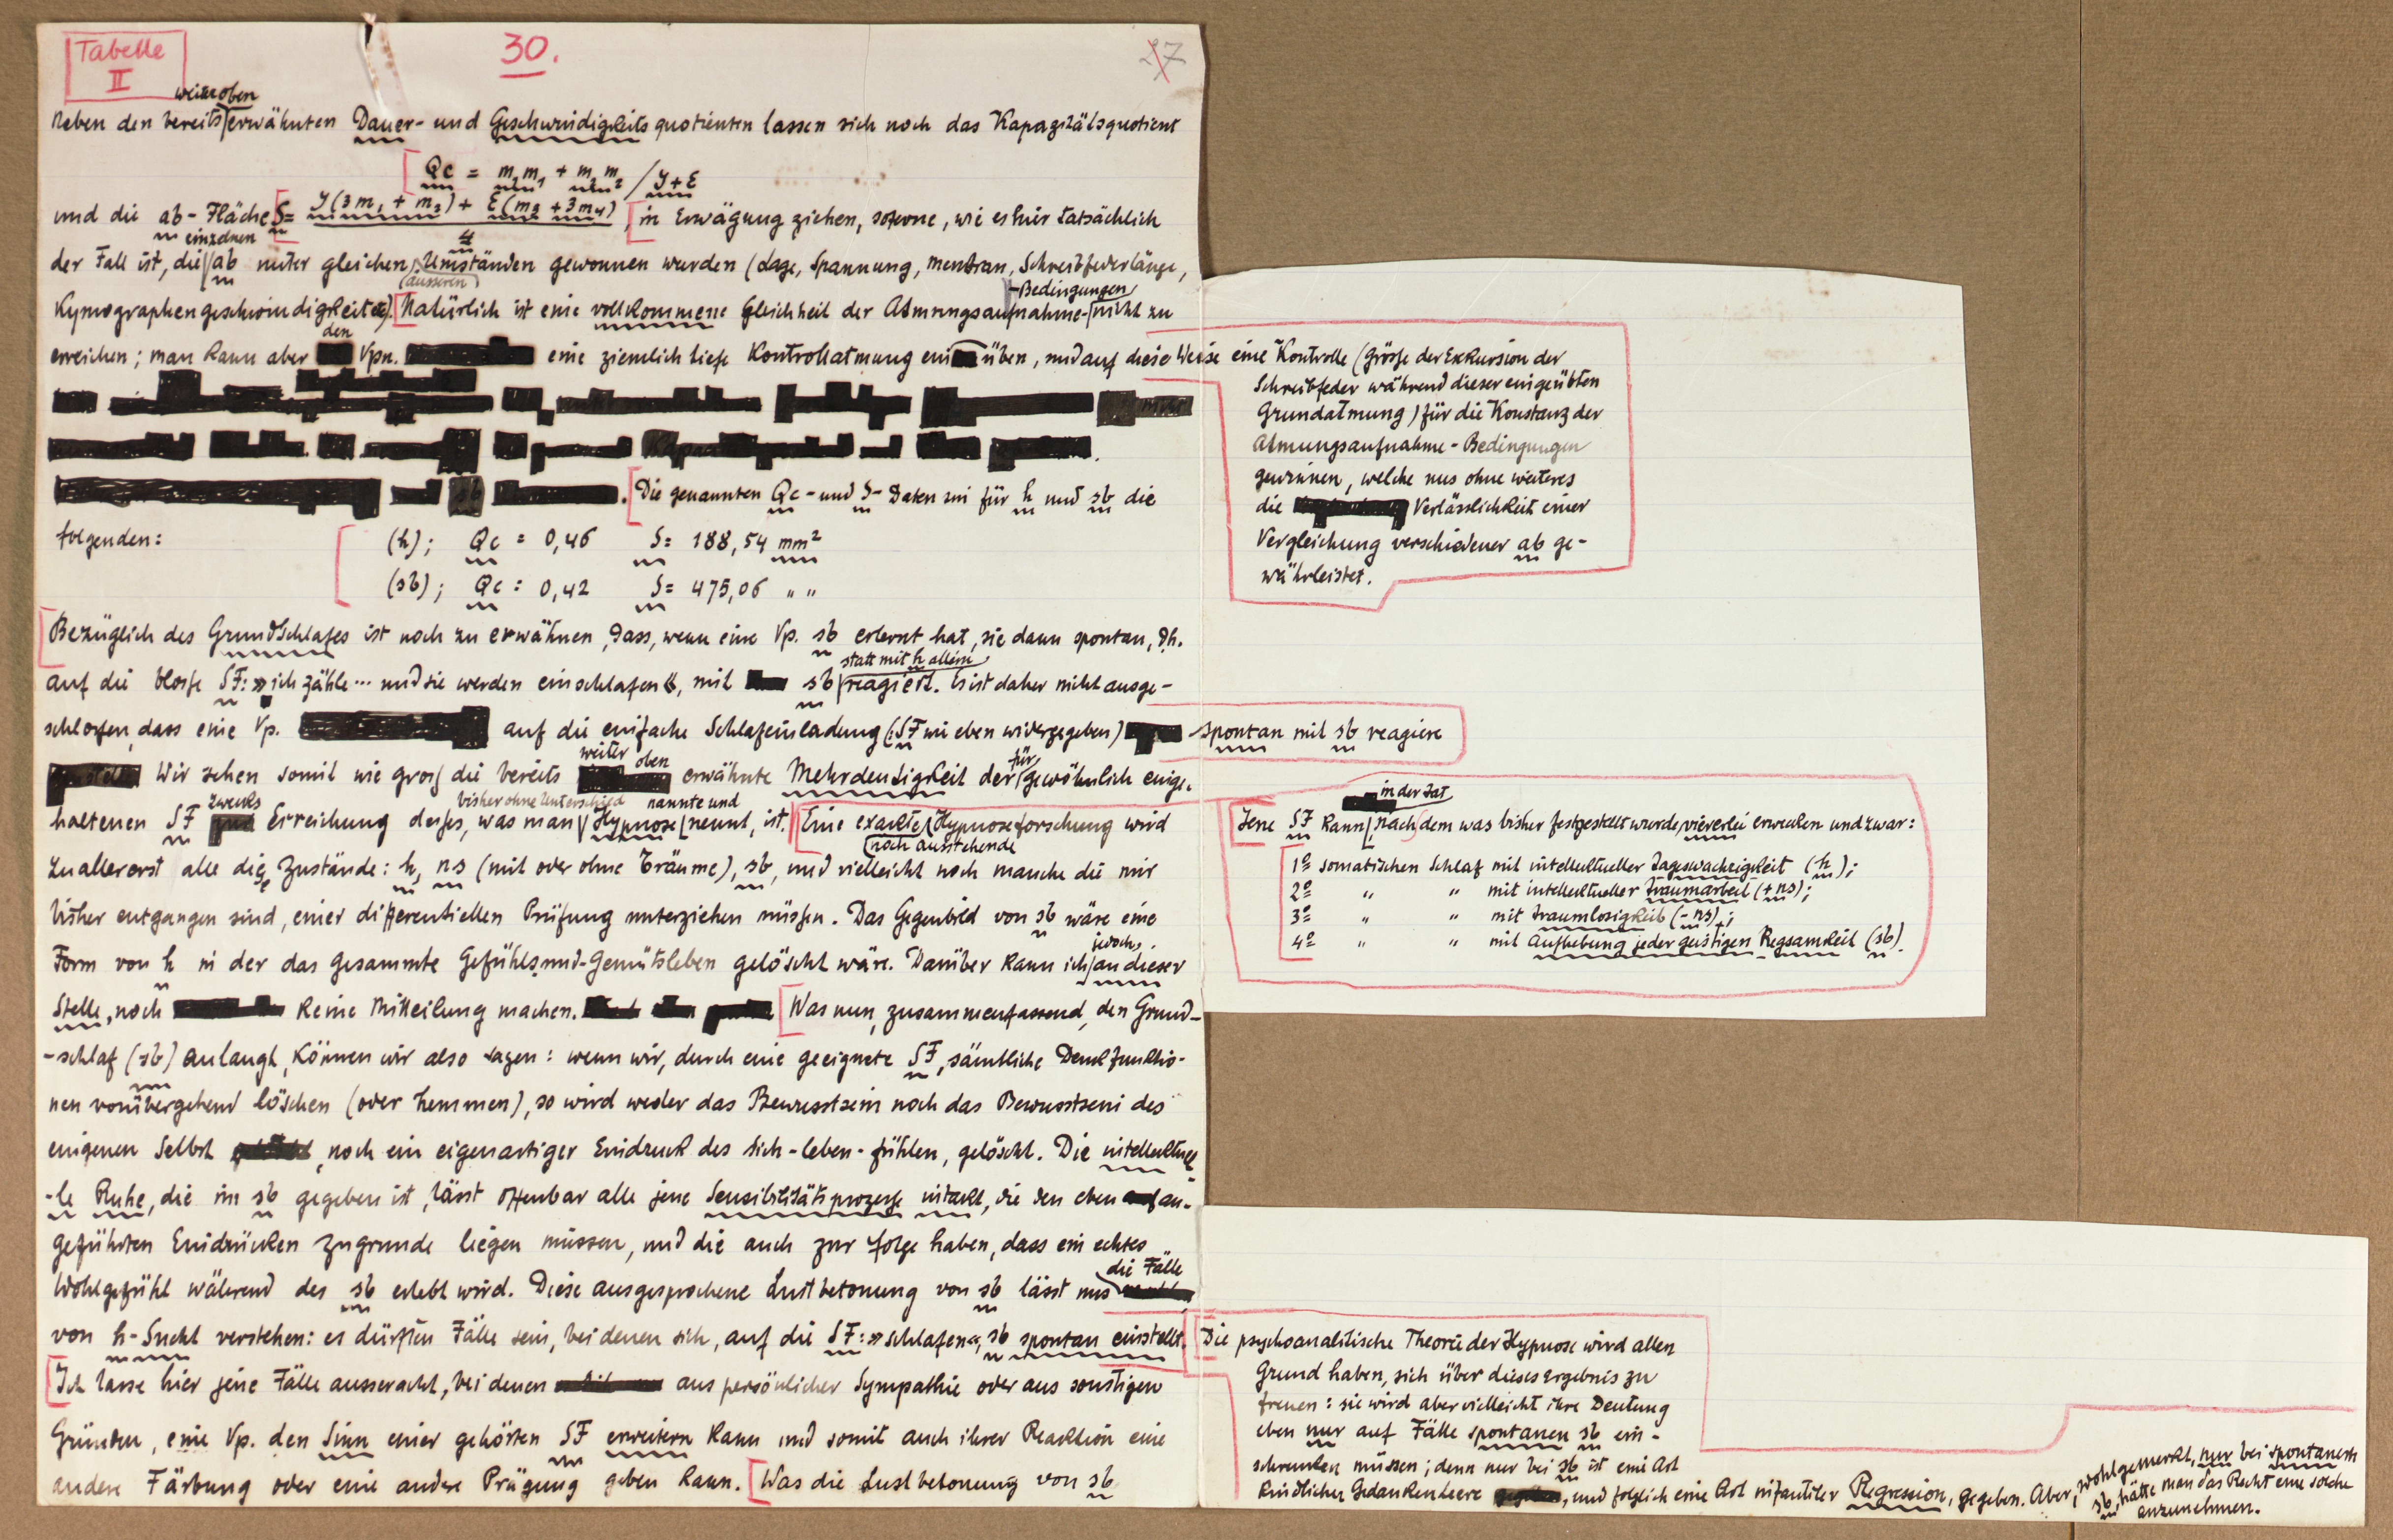 Tabelle
II
30.
27
weiter oben
Neben den bereits erwähnten Dauer- und Geschwindigkeitsquotienten lassen sich noch das Kapazitätsquotient
Qc = m₁m₁ + m₂m₂ / J+E
und die ab-Fläche S = J(3m₁ + m₂) + E(m₃ + 3m₄) / 4 in Erwägung ziehen, soferne, wie es hier tatsächlich
einzelnen
der Fall ist, die ab unter gleichen Umständen gewonnen wurden (Lage, Spannung, Membran, Schreibfederlänge,
(äusseren)
-Bedingungen
Kymographengeschwindigkeit etc). Natürlich ist eine vollkommene Gleichheit der Atmungsaufnahme- nicht zu
den
erreichen; man kann aber Vpn. eine ziemlich tiefe Kontrollatmung ein üben, und auf diese Weise eine Kontrolle (Grösse der Exkursion der
Schreibfeder während dieser eingeübten
Grundatmung) für die Konstanz der
Atmungsaufnahme-Bedingungen
gewinnen, welche uns ohne weiteres
die Verlässlichkeit einer
Vergleichung verschiedener ab ge-
währleistet.
Die genannten Qc- und S- Daten sind für h und sb die
folgenden:
(h); Qc = 0,46 S = 188,54 mm²
(sb); Qc = 0,42 S = 475,06 " "
Bezüglich des Grundschlafes ist noch zu erwähnen, dass, wenn eine Vp. sb erlernt hat, sie dann spontan, d.h.
statt mit h allein
auf die blosse SF: »ich zähle... und sie werden einschlafen«, mit sb reagiert. Es ist daher nicht ausge-
schlossen, dass eine Vp. auf die einfache Schlafeinladung (:SF wie eben widergegeben) spontan mit sb reagiere
weiter oben
für
Wir sehen somit wie gross die bereits erwähnte Mehrdeutigkeit der gewöhnlich einge-
zwecks
bisher ohne Unterschied nannte und
haltenen SF Erreichung dessen, was man Hypnose nennt, ist. Eine exakte Hypnoseforschung wird
noch ausstehende
in der Tat
Jene SF kann nach dem was bisher festgestellt wurde, viererlei erwecken und zwar:
1º somatischen Schlaf mit intellektueller Tageswachrigkeit (h);
2º " " mit intellektueller Traumarbeit (+ns);
3º " " mit Traumlosigkeit (-ns);
4º " " mit Aufhebung jeder geistigen Regsamkeit (sb).
zu allererst alle die Zustände: h, ns (mit oder ohne Träume), sb, und vielleicht noch manche die mir
bisher entgangen sind, einer differentiellen Prüfung unterziehen müssen. Das Gegenbild von sb wäre eine
jedoch,
Form von h in der das gesammte Gefühls-und-Gemütsleben gelöscht wäre. Darüber kann ich an dieser
Stelle, noch keine Mitteilung machen. Was nun, zusammenfassend, den Grund-
-schlaf (sb) anlangt, können wir also sagen: wenn wir, durch eine geeignete SF, sämtliche Denkfunktio-
nen vorübergehend löschen (oder hemmen), so wird weder das Bewusstsein noch das Bewusstsein des
eigenen Selbst, noch ein eigenartiger Eindruck des Sich-leben-fühlen, gelöscht. Die intellektuel-
-le Ruhe, die im sb gegeben ist, lässt offenbar alle jene Sensibilitätsprozesse intakt, die den eben an-
geführten Eindrücken zugrunde liegen müssen, und die auch zur Folge haben, dass ein echtes
die Fälle
Wohlgefühl während des sb erlebt wird. Diese ausgesprochene Lustbetonung von sb lässt uns
von h-Sucht verstehen: es dürften Fälle sein, bei denen sich, auf die SF: »schlafen«, sb spontan einstellt.
Die psychoanalitische Theorie der Hypnose wird allen
Grund haben, sich über dieses Ergebnis zu
freuen: sie wird aber vielleicht ihre Deutung
eben nur auf Fälle spontanen sb ein-
schrenken müssen; denn nur bei sb ist eine Art
kindlicher Gedankenleere, und folglich eine Art infantiler Regression, gegeben. Aber, wohlgemerkt, nur bei spontanem
sb, hätte man das Recht eine solche
anzunehmen.
Ich lasse hier jene Fälle ausseracht, bei denen aus persönlicher Sympathie oder aus sonstigen
Gründen, eine Vp. den Sinn einer gehörten SF erweitern kann und somit auch ihrer Reaktion eine
andere Färbung oder eine andere Prägung geben kann. Was die Lustbetonung von sb